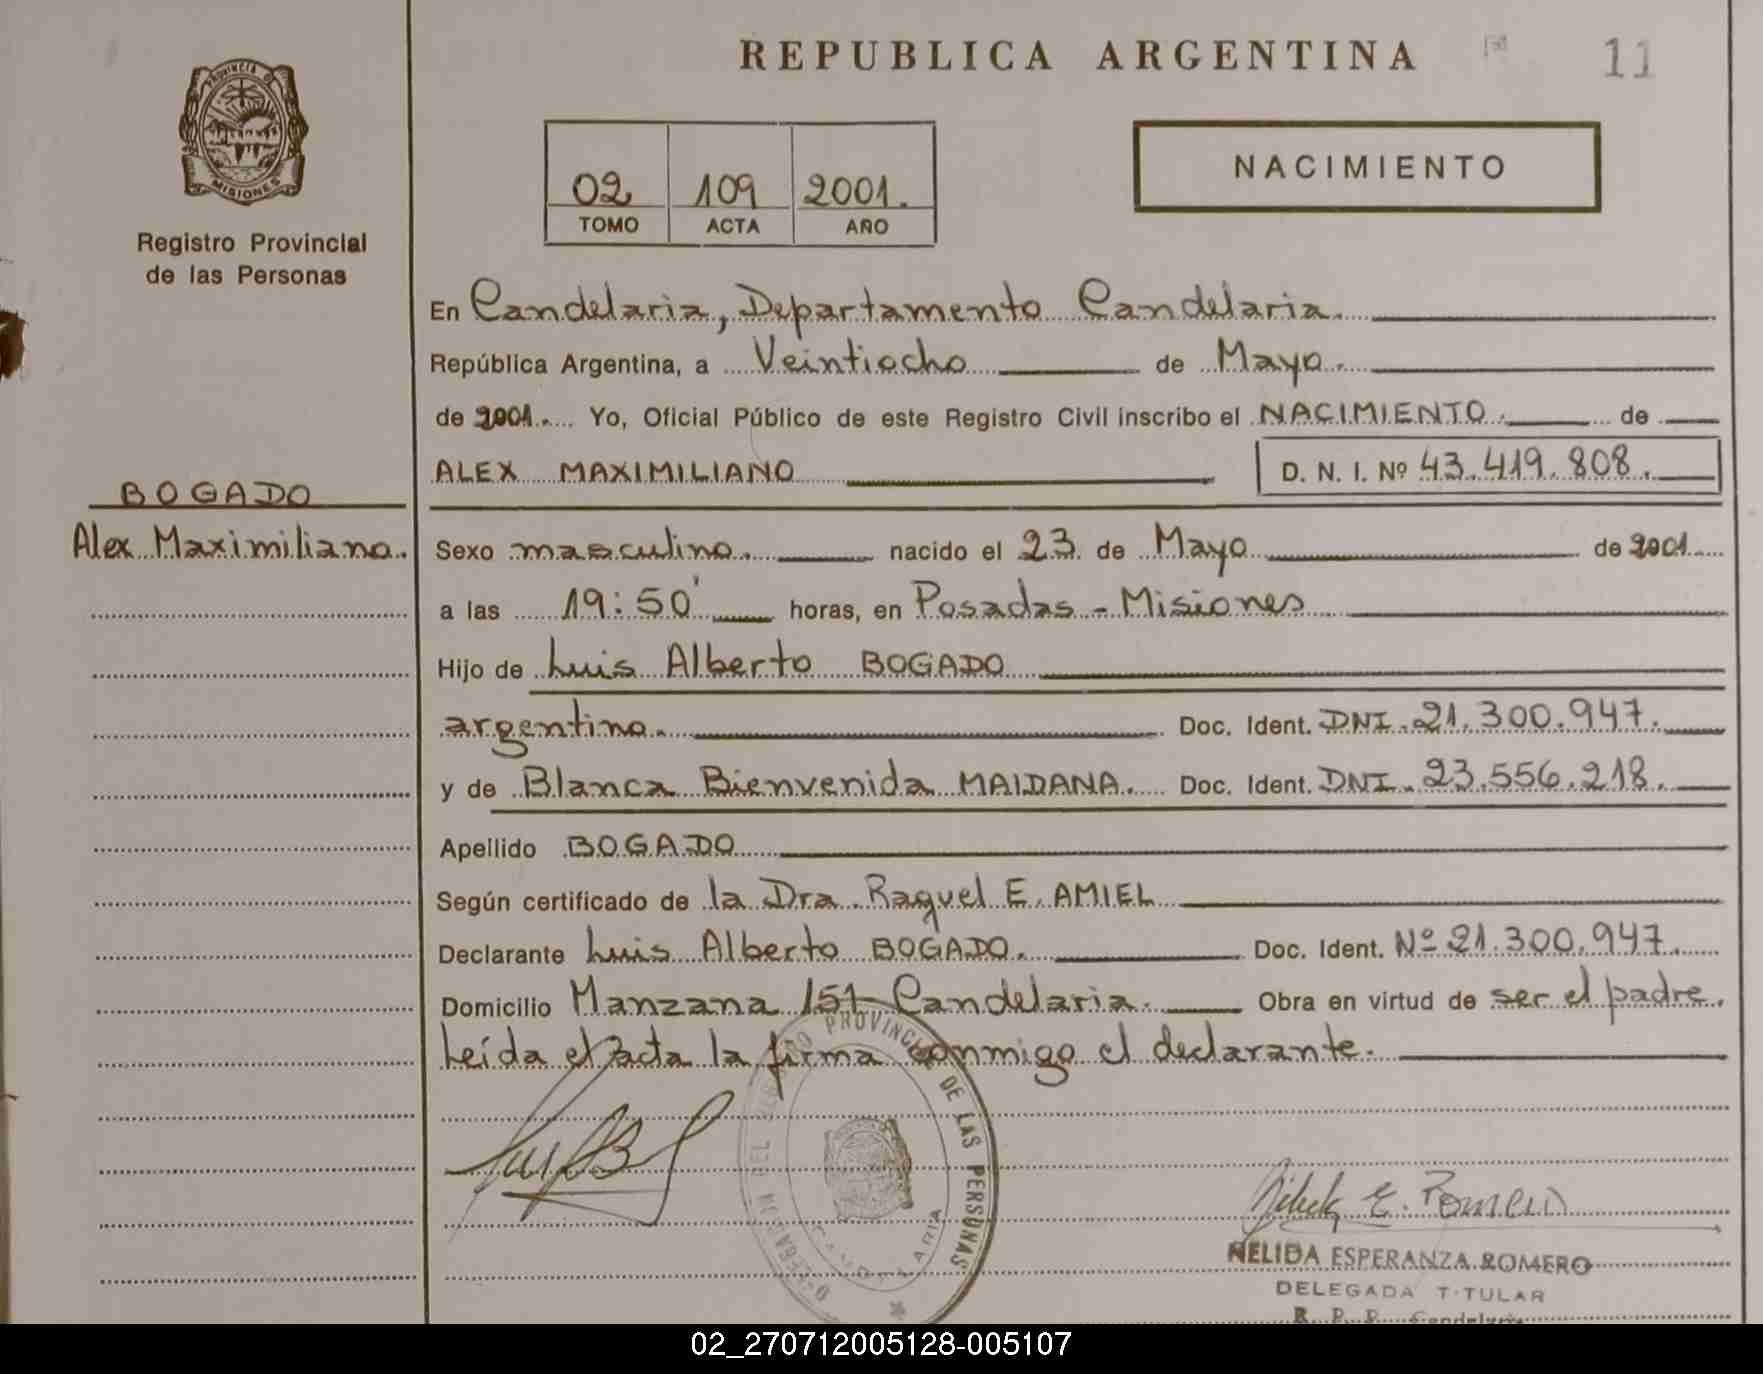 REPUBLICA ARGENTINA
11
PROVINCIA DE
MISIONES
Registro Provincial
de las Personas
02 109 2001.
TOMO ACTA AÑO
NACIMIENTO
En Candelaria, Departamento Candelaria.
República Argentina, a Veintiocho de Mayo.
de 2001. Yo, Oficial Público de este Registro Civil inscribo el NACIMIENTO. de
ALEX MAXIMILIANO D. N. I. Nº 43.419.808.
BOGADO
Alex Maximiliano.
Sexo masculino. nacido el 23 de Mayo de 2001
a las 19:50' horas, en Posadas - Misiones
Hijo de Luis Alberto BOGADO
argentino. Doc. Ident. DNI. 21.300.947.
y de Blanca Bienvenida MAIDANA. Doc. Ident. DNI. 23.556.218.
Apellido BOGADO
Según certificado de la Dra. Raquel E. AMIEL
Declarante Luis Alberto BOGADO. Doc. Ident. Nº 21.300.947.
Domicilio Manzana 151- Candelaria. Obra en virtud de ser el padre.
Leída el acta la firma conmigo el declarante.
PROVINCIAL DE LAS PERSONAS
CANDELARIA
E. Romero
NELIDA ESPERANZA ROMERO
DELEGADA TITULAR
R. P. P. Candelaria
02_270712005128-005107